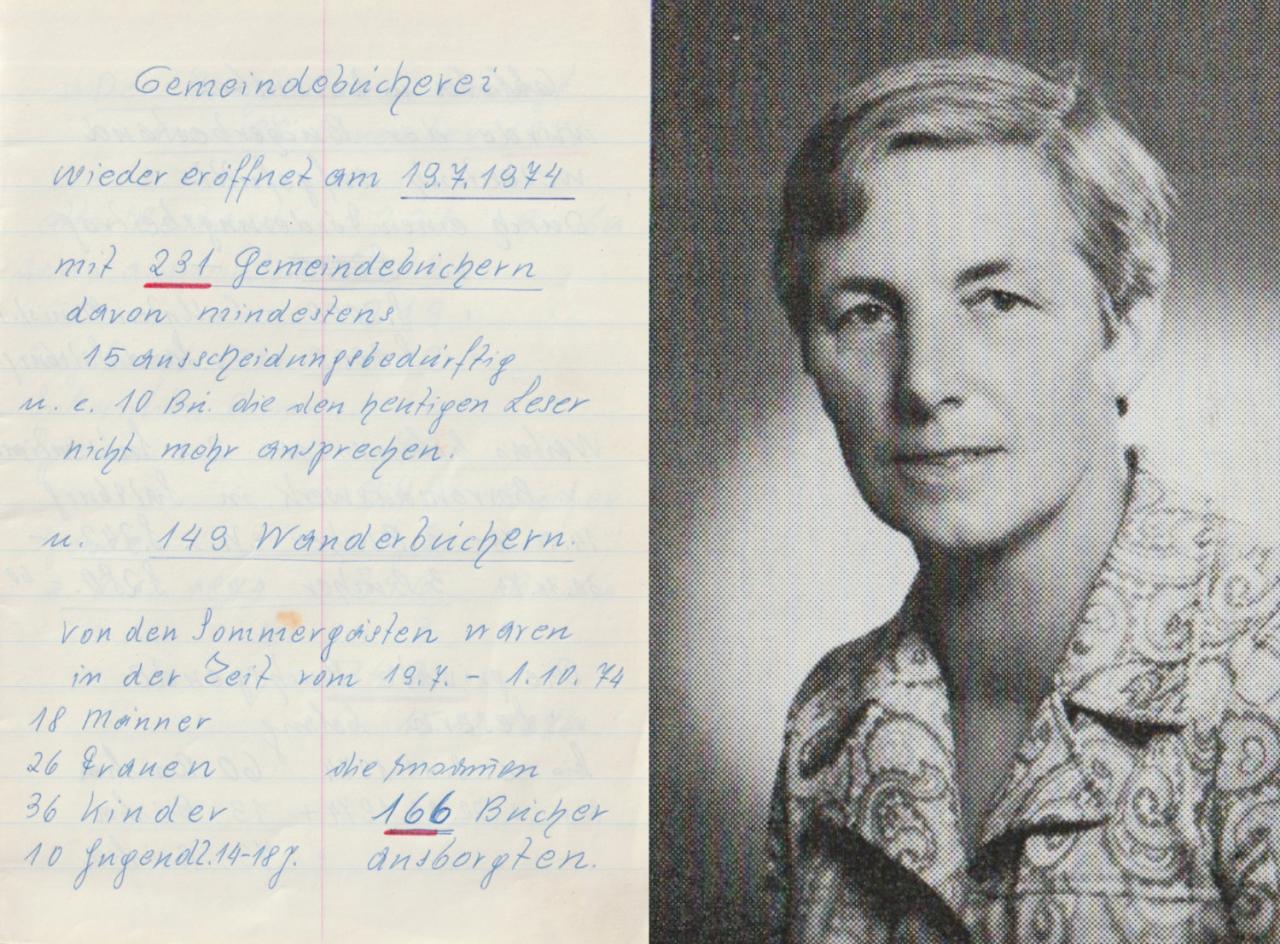 Gemeindebücherei
wieder eröffnet am 19.7.1974
mit 231 Gemeindebüchern
davon mindestens
15 ausscheidungsbedürftig
u. c. 10 Bü. die den heutigen Leser
nicht mehr ansprechen.
u. 149 Wanderbüchern.
von den Sommergästen waren
in der Zeit vom 19.7. - 1.10.74
18 Männer
26 Frauen die
36 Kinder 166 Bücher
10 Jugendl. 14-18 J. ausborgten.